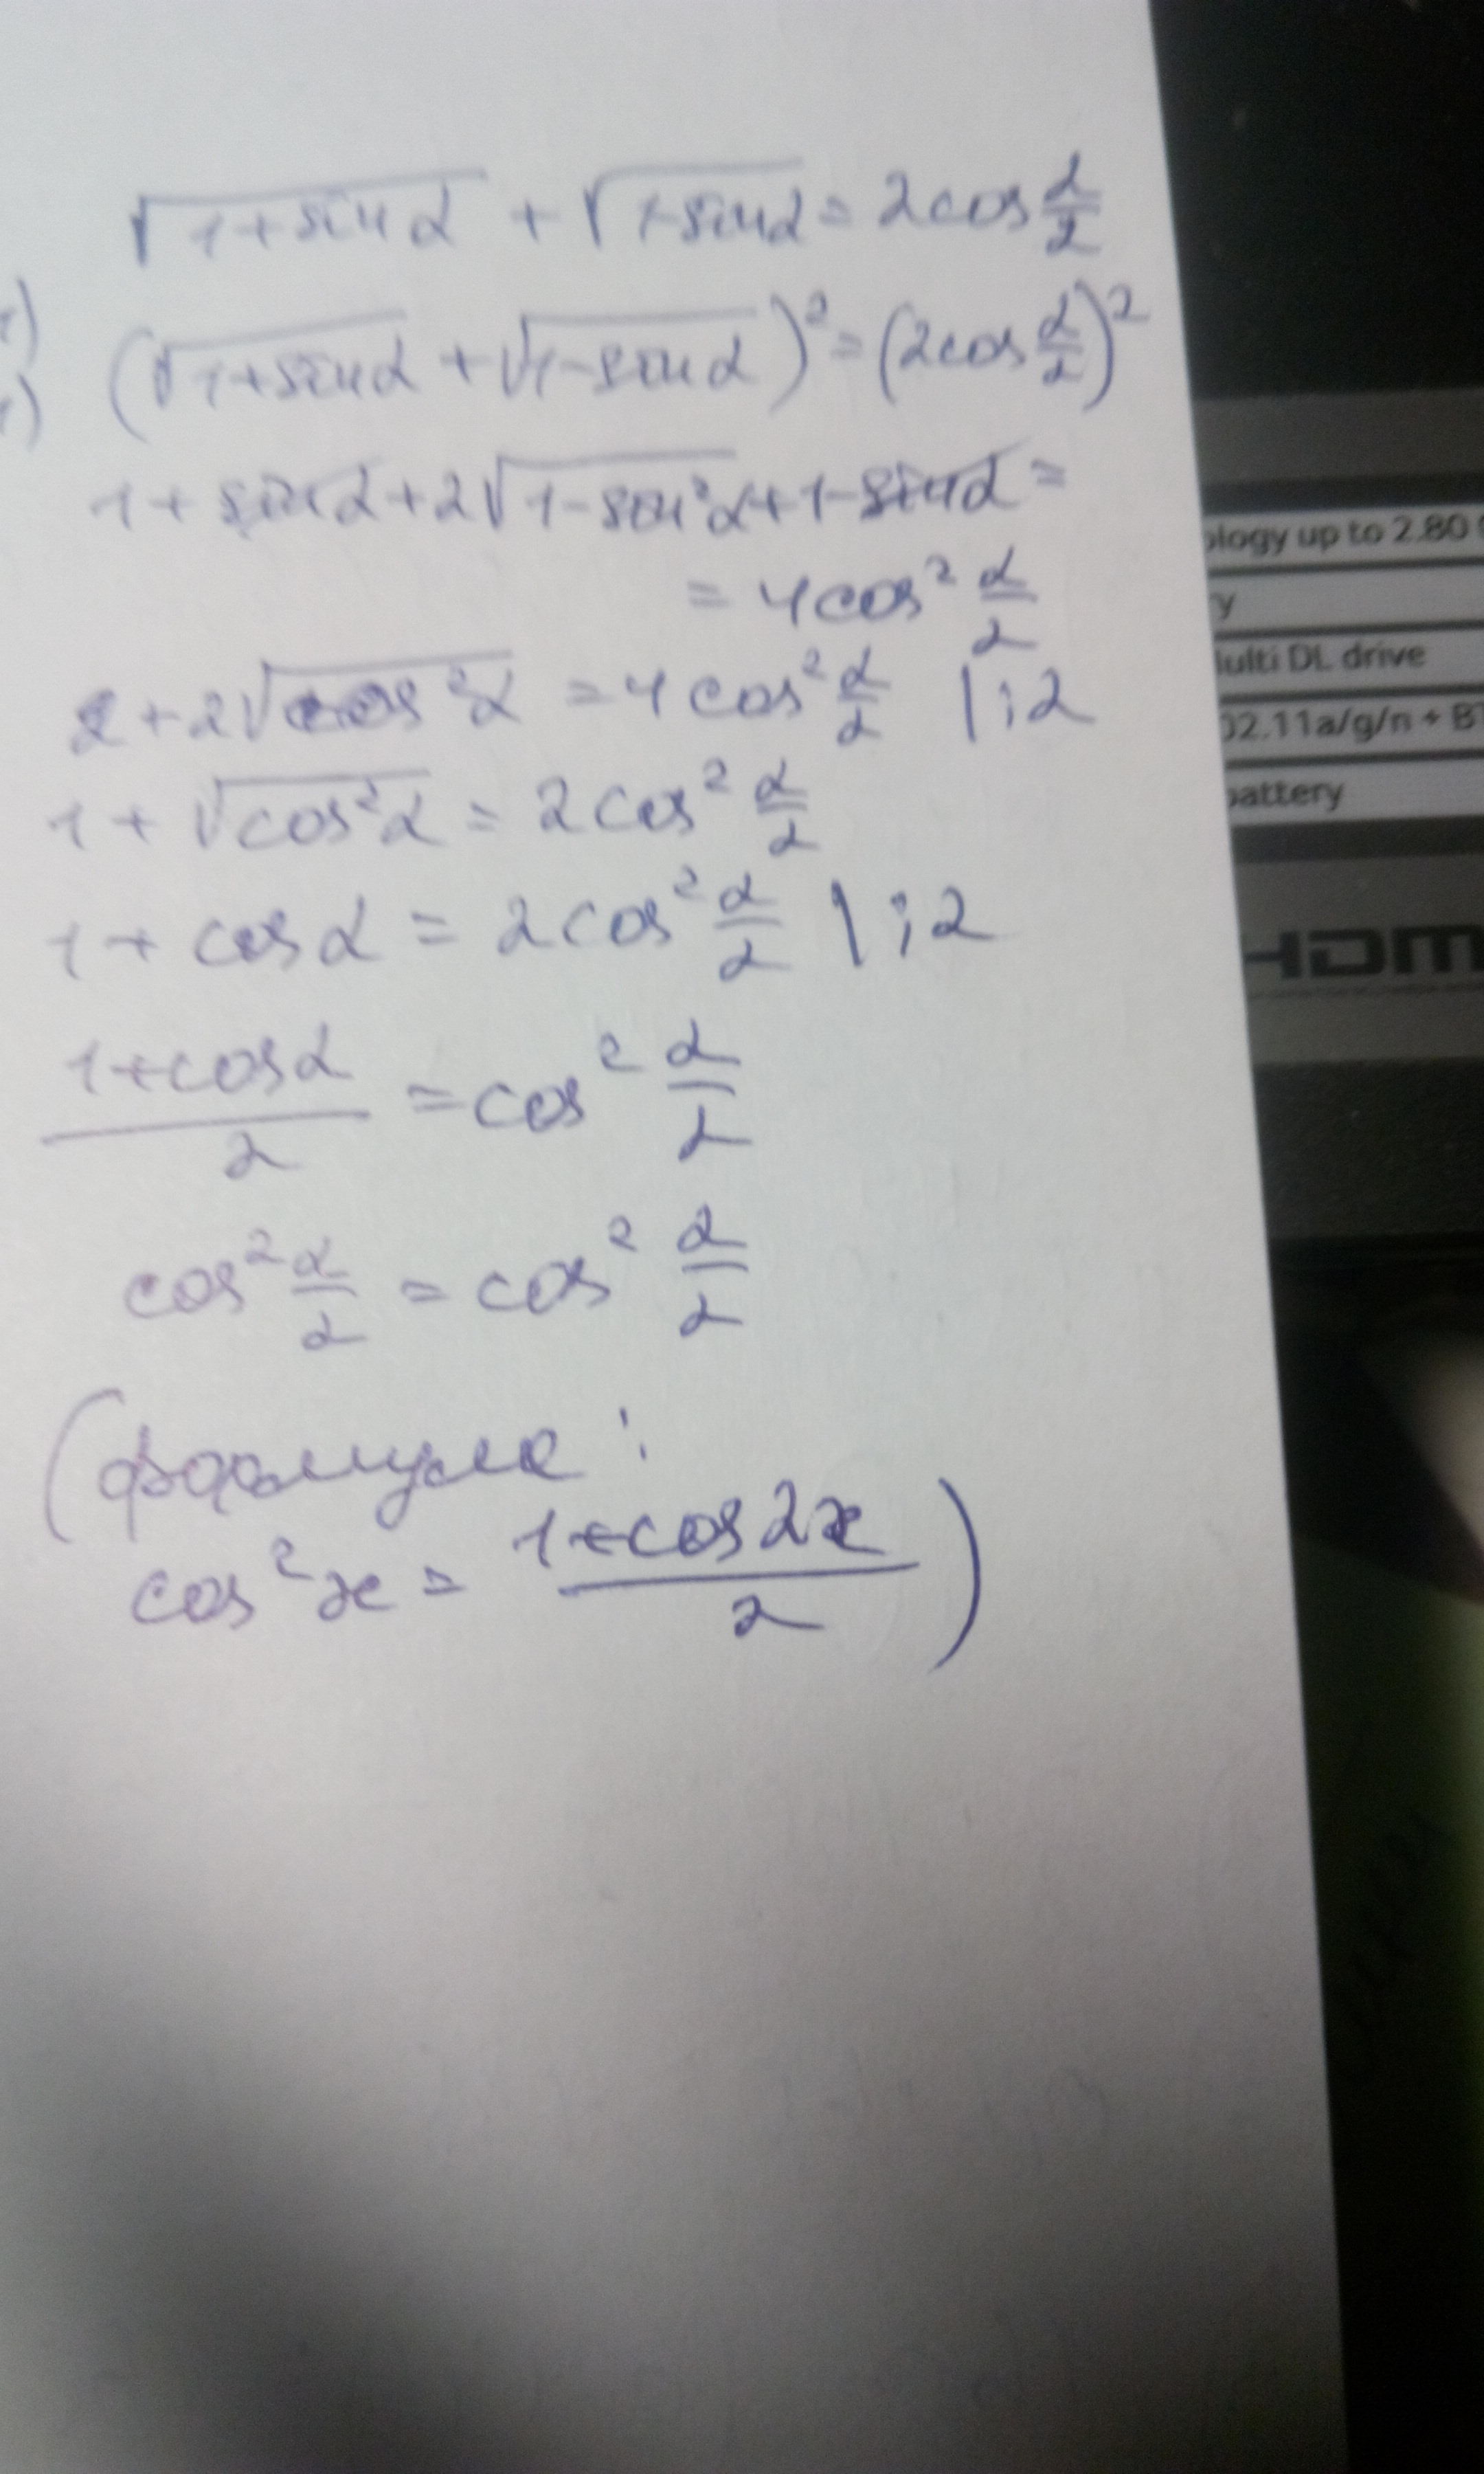 √(1+sinα) + √(1-sinα) = 2cos α/2
(√(1+sinα) + √(1-sinα))² = (2cos α/2)²
1 + sinα + 2√(1-sin²α) + 1 - sinα =
= 4cos² α/2
2 + 2√(cos²α) = 4cos² α/2 |:2
1 + √(cos²α) = 2cos² α/2
1 + cosα = 2cos² α/2 |:2
(1+cosα)/2 = cos² α/2
cos² α/2 = cos² α/2
(формула:
cos²x = (1+cos2x)/2)
ology up to 2.80
y
ulti DL drive
02.11a/g/n + B
battery
HDM